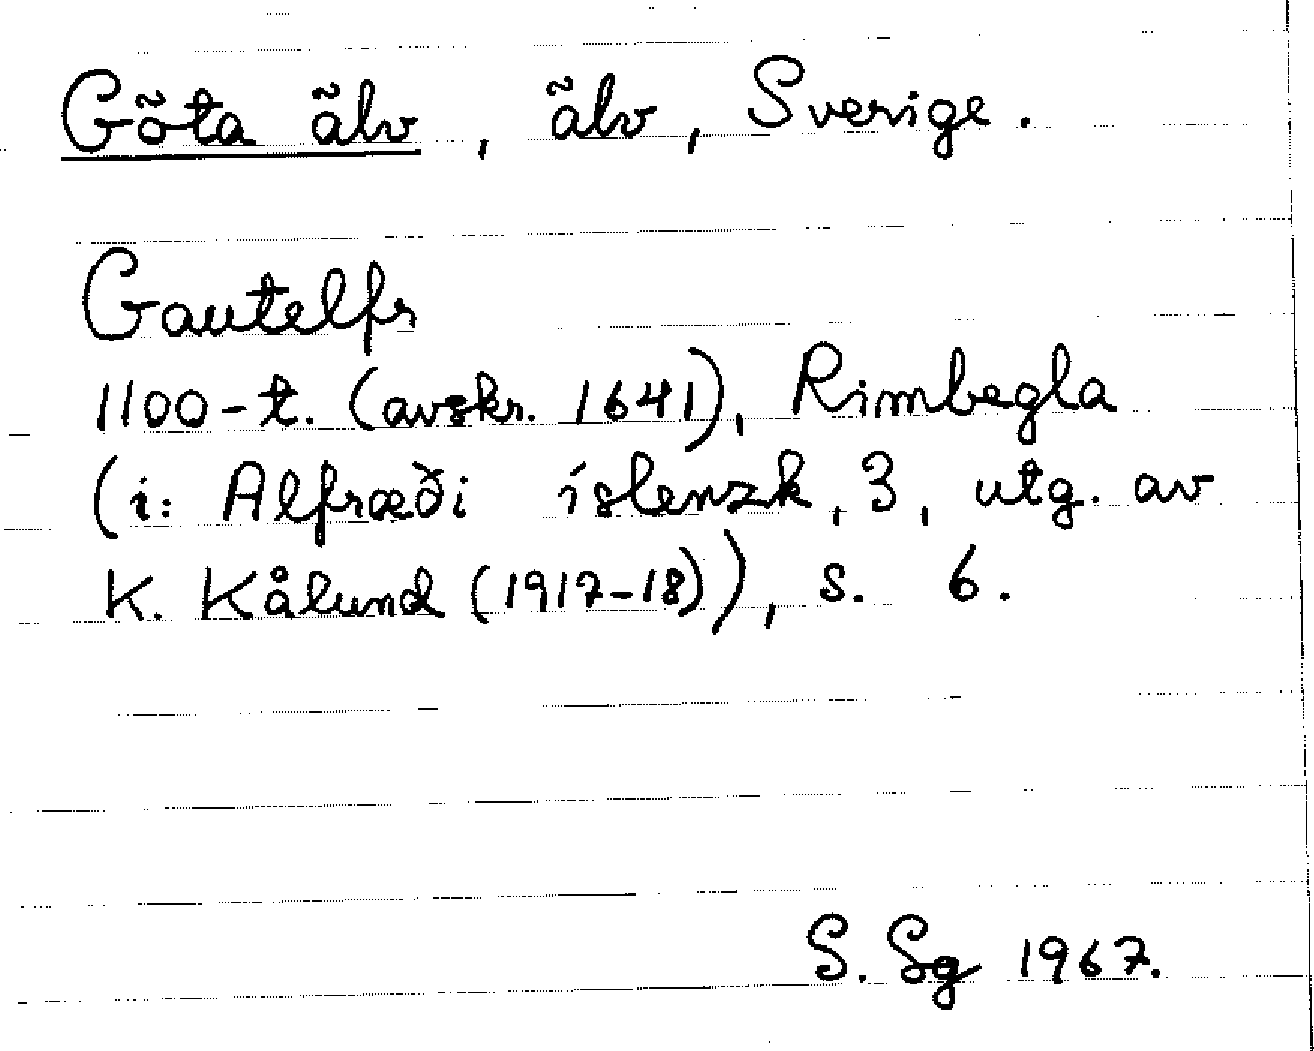 Göta älv, älv, Sverige.
Gautelfr
1100-t. (avskr. 1641), Rimbegla
(i: Alfræði íslenzk, 3, utg. av
K. Kålund (1917-18)), s. 6.
S. Sg 1967.